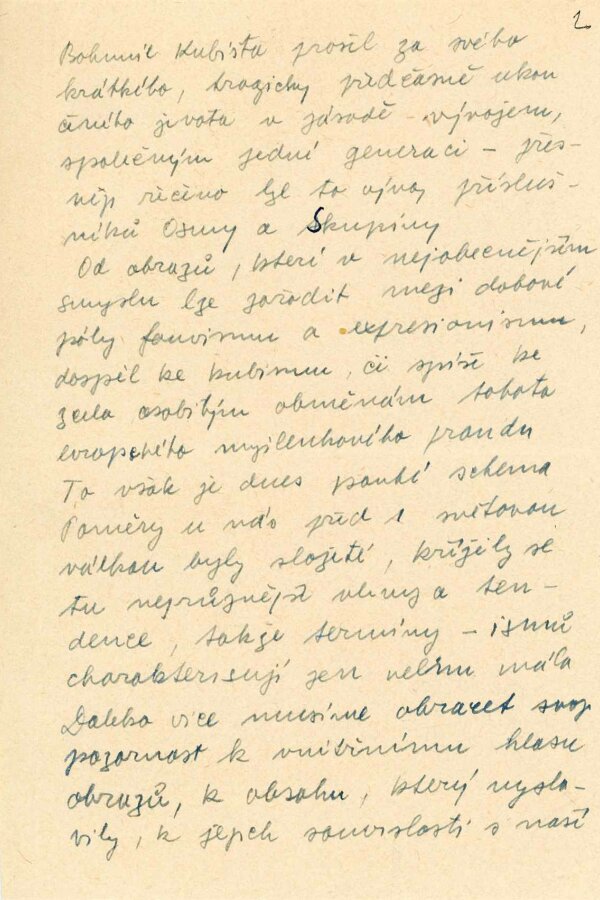 2.
Bohumil Kubišta prošil za svého
krátkého, tragicky předčasně ukon
čeného života v zásadě vývojem,
společným jedné generaci – přes-
něji řečeno lze to vývoj přísluš-
níků Osmy a Skupiny
Od obrazů, které v nejobecnějším
smyslu lze zařadit mezi dobové
póly fauvismu a expresionismu,
dospěl ke kubismu, či spíše ke
zcela osobitým obměnám tohoto
evropského myšlenkového proudu
To však je dnes pouhé schema
Poměry u nás před 1 světovou
válkou byly složité, křížily se
tu nejrůznější vlivy a ten-
dence, takže termíny – ismů
charakterisují jen velmi málo
Daleko více musíme obracet svoji
pozornost k vnitřnímu hlasu
obrazů, k obsahu, který vyslo-
vily, k jejich souvislosti s naší